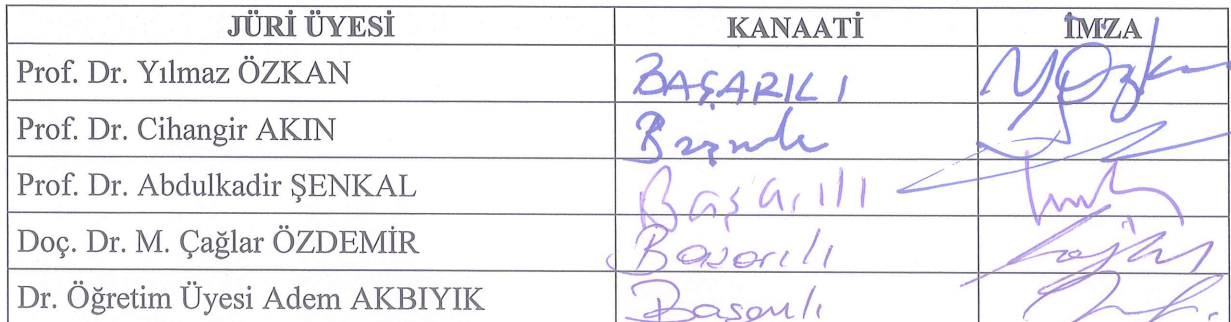 JÜRİ ÜYESİ KANAATİ İMZA
Prof. Dr. Yılmaz ÖZKAN BAŞARILI YÖzkan
Prof. Dr. Cihangir AKIN Başarılı
Prof. Dr. Abdulkadir ŞENKAL Başarılı
Doç. Dr. M. Çağlar ÖZDEMİR Başarılı
Dr. Öğretim Üyesi Adem AKBIYIK Başarılı